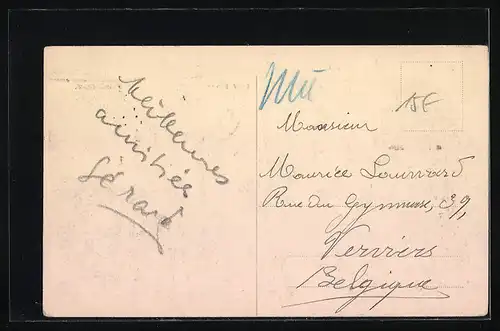 Meilleures
amitiés
Gérard
15F
Monsieur
Maurice
Rue du Gymnase, 39,
Verviers
Belgique